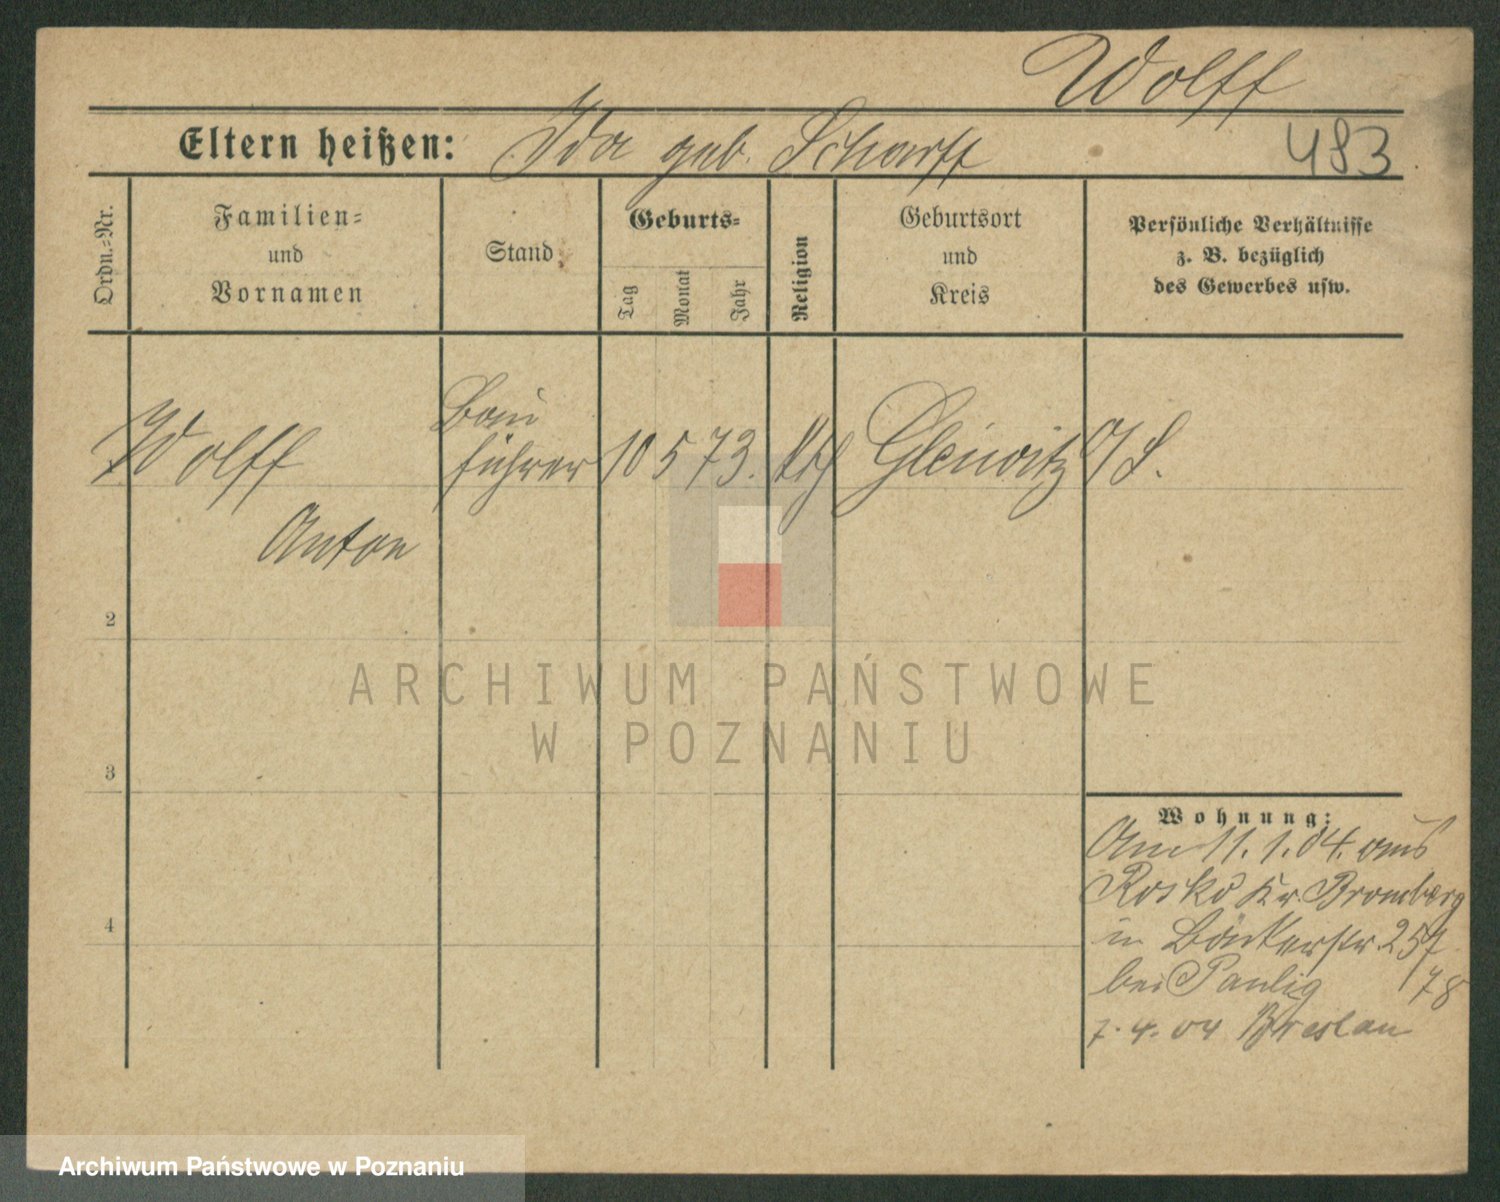 Wolff
Eltern heißen: Ida geb. Scharff
483
Ordn.-Nr.
Familien-
und
Vornamen
Stand
Geburts-
Tag
Monat
Jahr
Religion
Geburtsort
und
Kreis
Persönliche Verhältnisse
z. B. bezüglich
des Gewerbes usw.
Wolff
Bau
führer
10 5 73. kth Gleiwitz O/S.
Anton
2
3
4
Wohnung:
Am 11. 1. 04. aus
Rosko Kr. Bromberg
in 257
bei Paulig 178
7. 4. 04 Breslau
ARCHIWUM PAŃSTWOWE
W POZNANIU
Archiwum Państwowe w Poznaniu